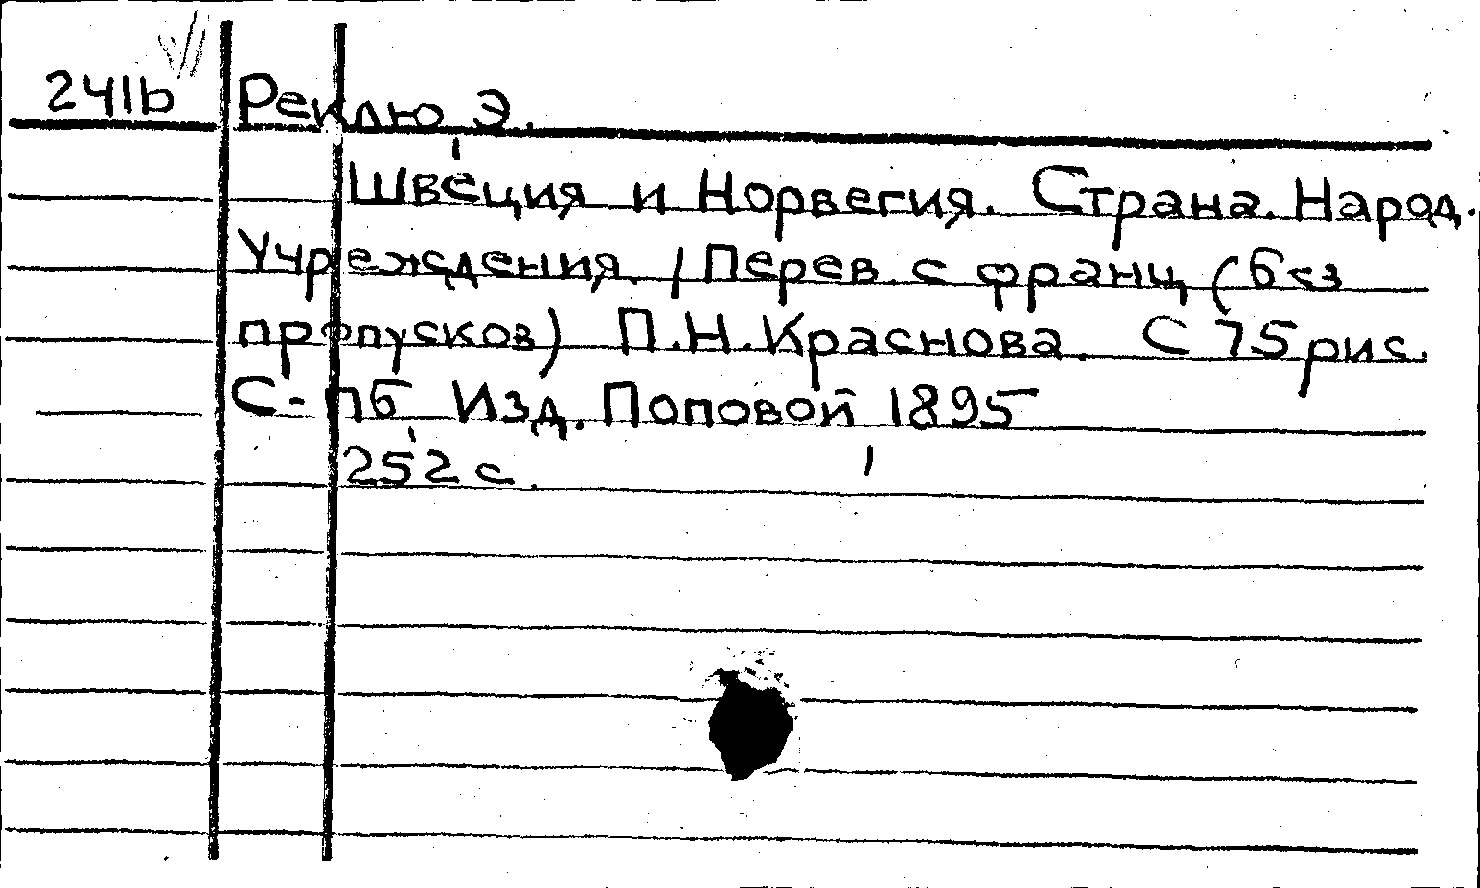 241b Реклю Э.
Швеция и Норвегия. Страна. Народ.
Учреждения. / Перев. с франц (без
пропусков) П.Н.Краснова. С 75 рис.
С-пб, Изд. Поповой, 1895
252 с.